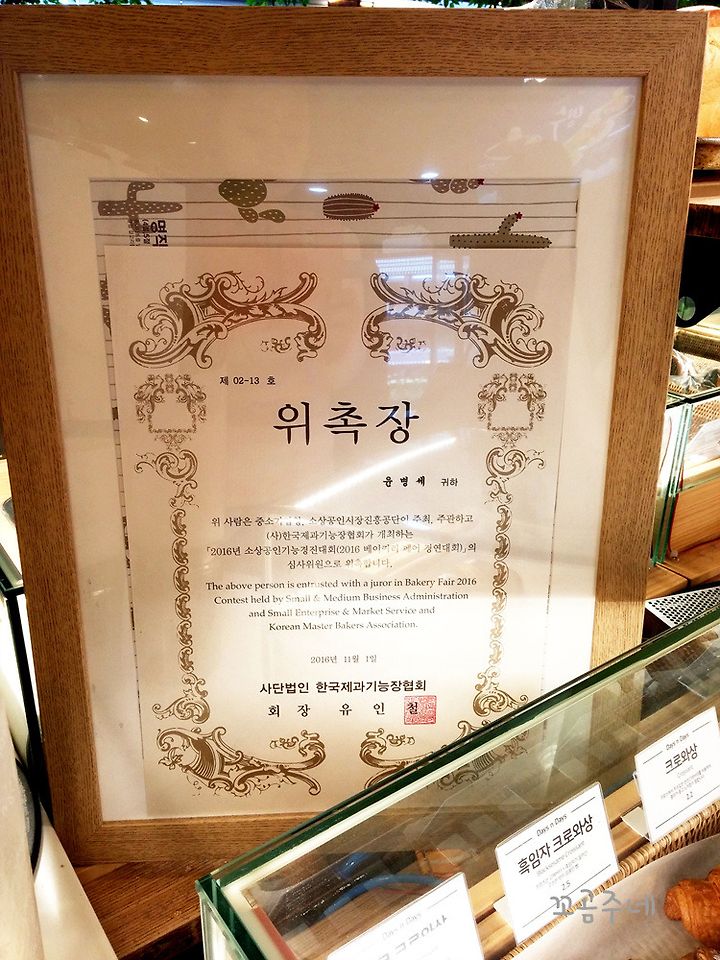 제 02-13 호
위촉장
윤병세 귀하
위 사람은 중소기업청, 소상공인시장진흥공단이 주최, 주관하고
(사)한국제과기능장협회가 개최하는
「2016년 소상공인기능경진대회(2016 베이커리 페어 경연대회)」의
심사위원으로 위촉합니다.
The above person is entrusted with a juror in Bakery Fair 2016
Contest held by Small & Medium Business Administration
and Small Enterprise & Market Service and
Korean Master Bakers Association.
2016년 11월 1일
사단법인 한국제과기능장협회
회 장 유 인 철
Days n Days
크로와상
Croissant
2.2
Days n Days
흑임자 크로와상
2.5
Days n Days
크로와상
꼬곰주네